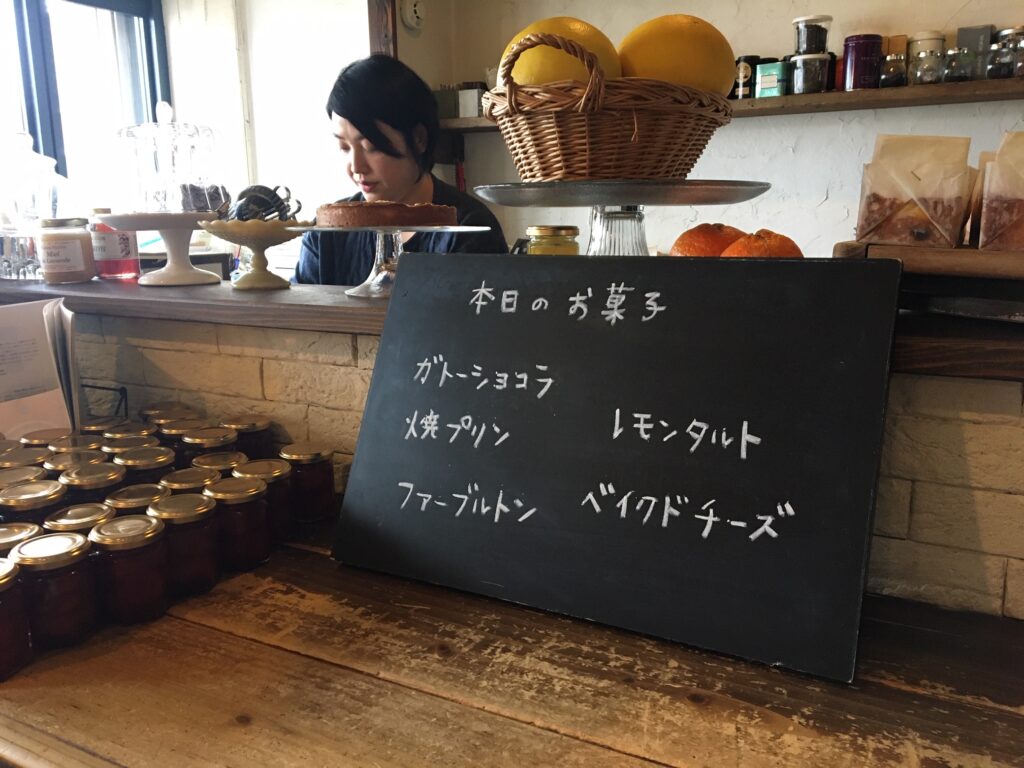 本日のお菓子
ガトーショコラ
焼プリン レモンタルト
ファーブルトン ベイクドチーズ
Miel